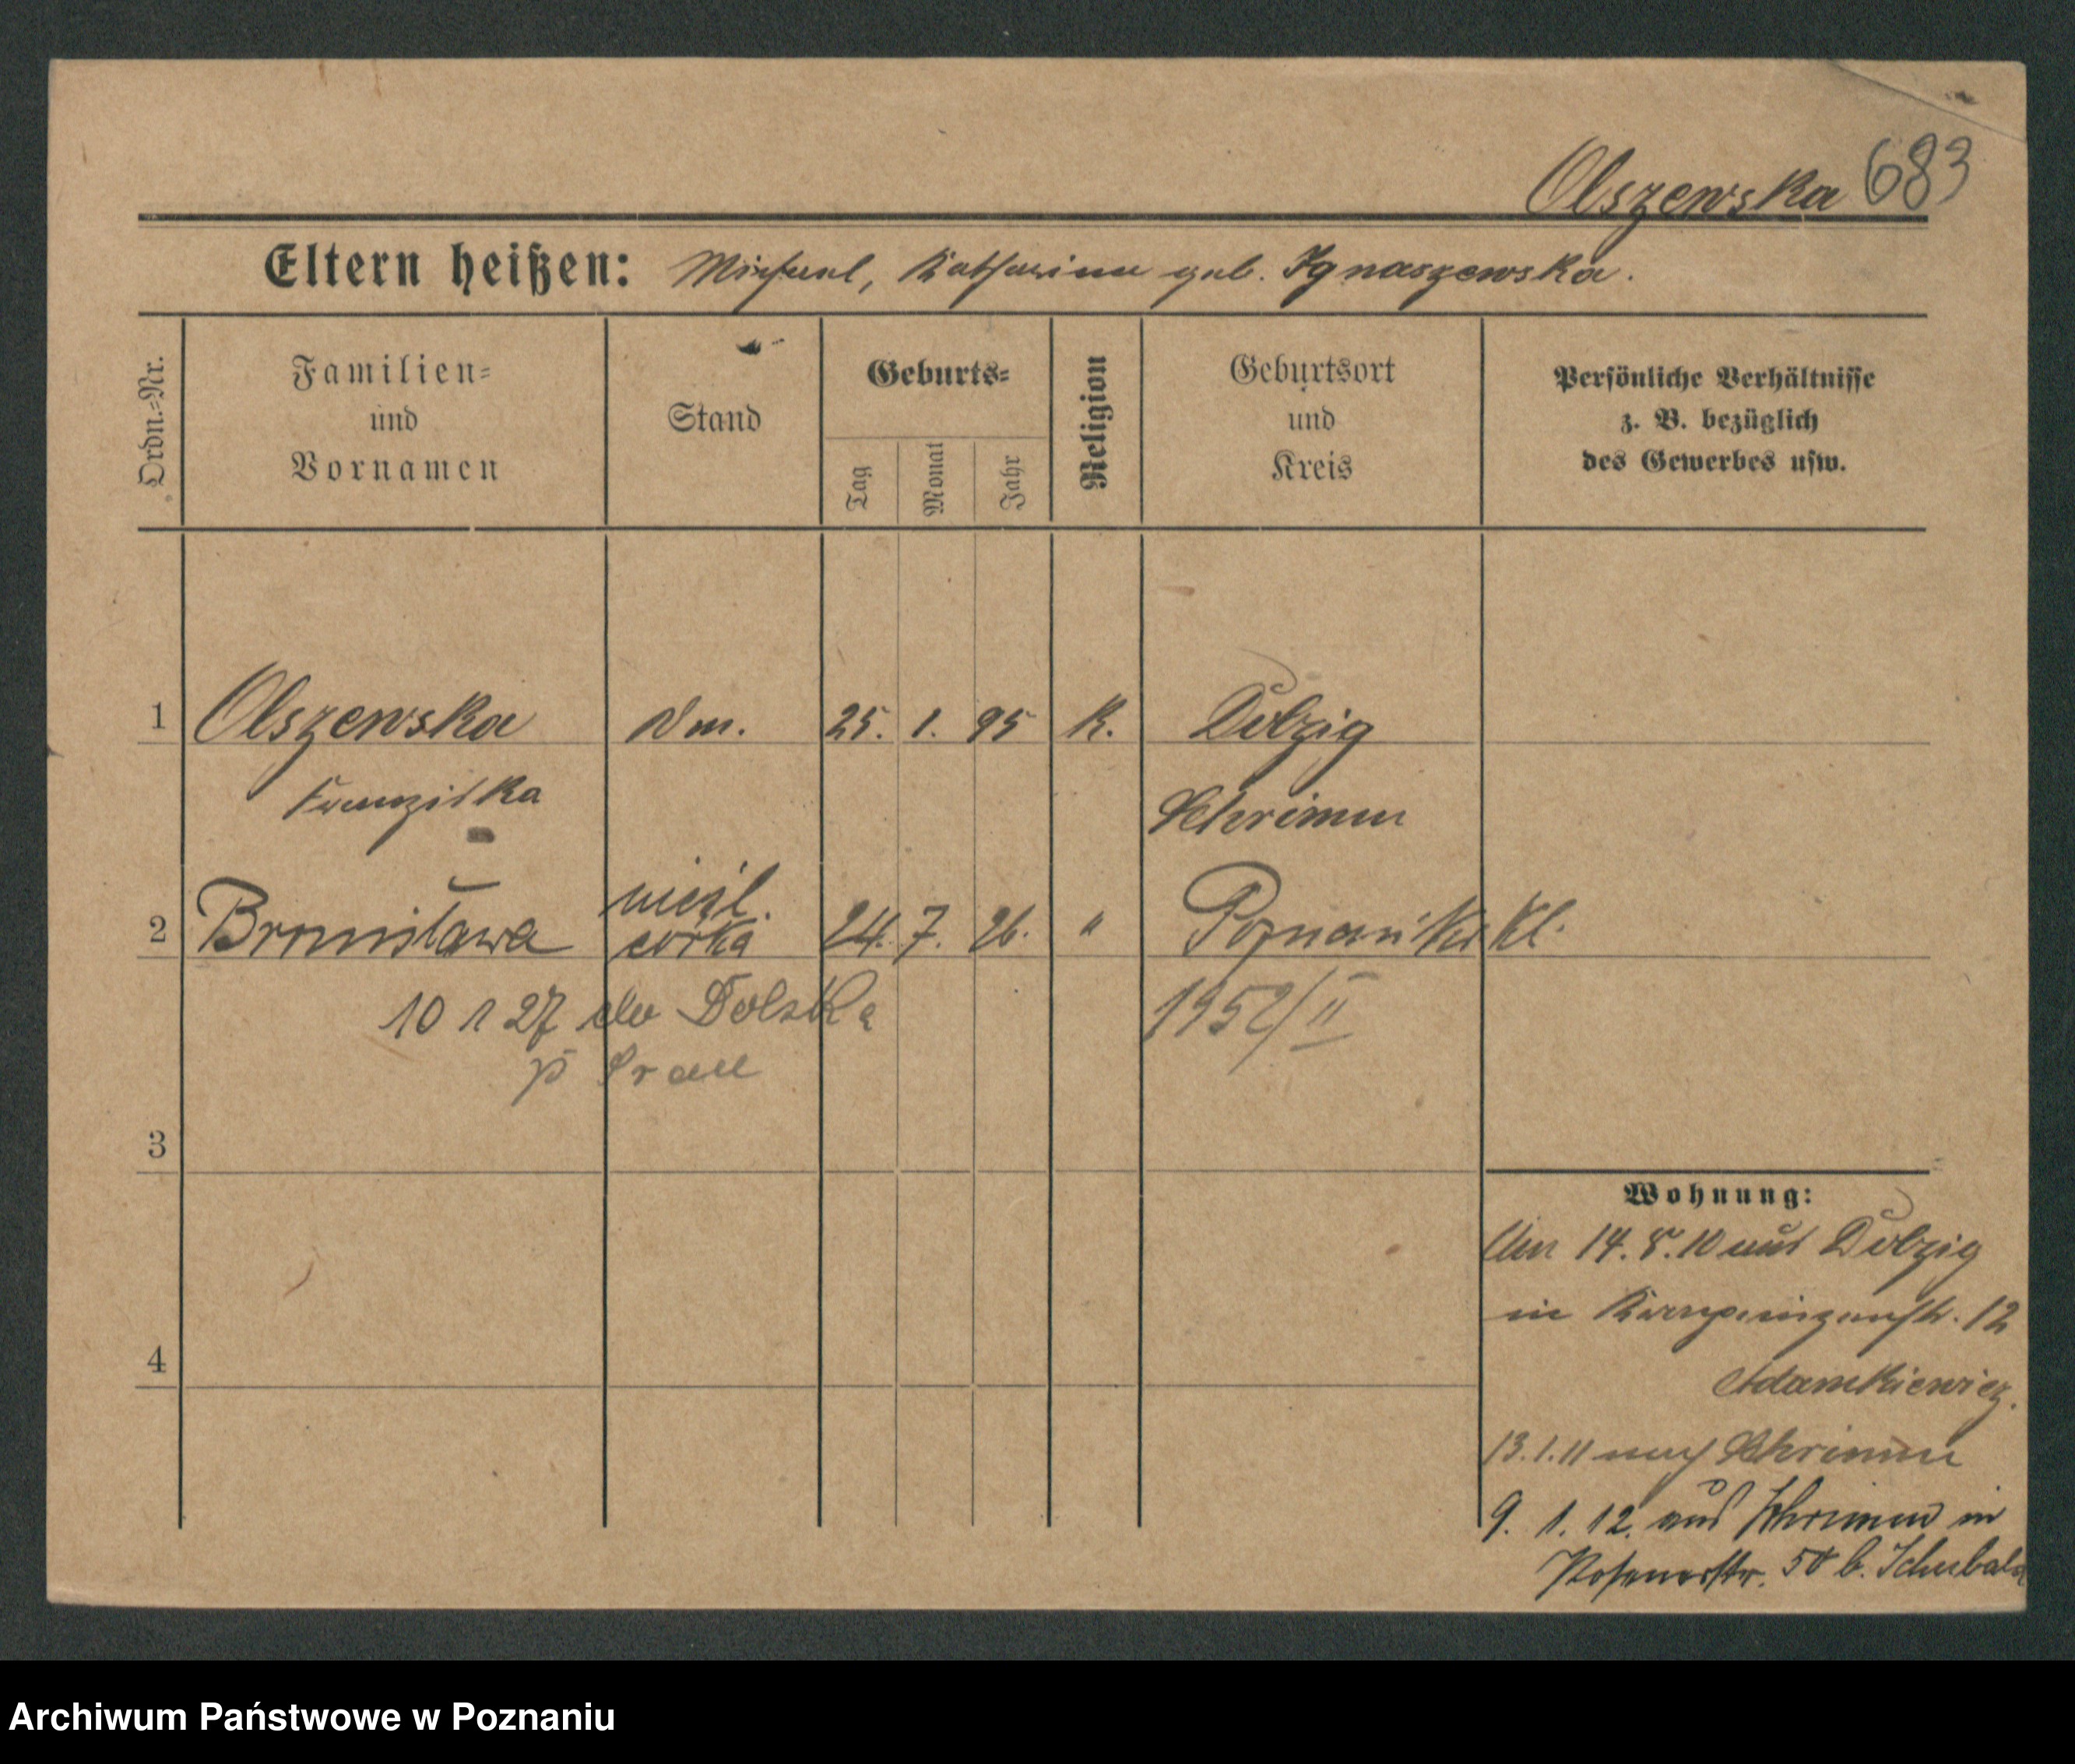 Olszewska 683
Eltern heißen: Michael, Katharina geb. Ignaszewska.
Ordn.=Nr.
Familien=
und
Vornamen
Stand
Geburts=
Tag
Monat
Jahr
Religion
Geburtsort
und
Kreis
Persönliche Verhältnisse
z. B. bezüglich
des Gewerbes usw.
1 Olszewska Dm. 25. 1. 95 K. Dolzig
Franziska Schrimm
2 Bronisława nieśl. córka 24. 7. 26. " Poznań Kr Kl.
10 1 27 do Dolska 1952/II
p Śrem
3
4
Wohnung:
An 14. 5. 10 aus Dolzig
in 12
Adamkiewicz.
13. 1. 11 nach Schrimm
9. 1. 12. aus Schrimm in
Posenerstr. 50 b. Schubald
Archiwum Państwowe w Poznaniu